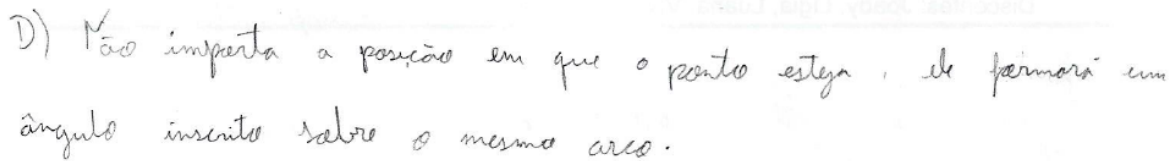 D) Não importa a posição em que o ponto esteja, ele formará um
ângulo inscrito sobre o mesmo arco.